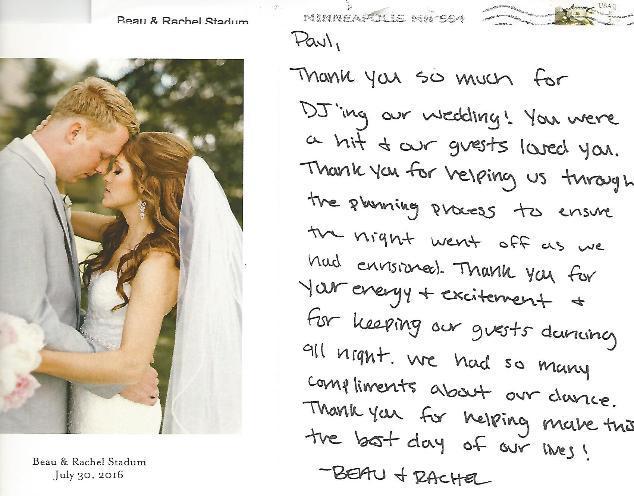 Beau & Rachel Stadum
MINNEAPOLIS MN 554
USA
Paul,
Thank you so much for
DJ'ing our wedding! You were
a hit & our guests loved you.
Thank you for helping us through
the planning process to ensure
the night went off as we
had envisioned. Thank you for
your energy + excitement +
for keeping our guests dancing
all night. We had so many
compliments about our dance.
Thank you for helping make this
the best day of our lives!
~BEAU + RACHEL
Beau & Rachel Stadum
July 30, 2016